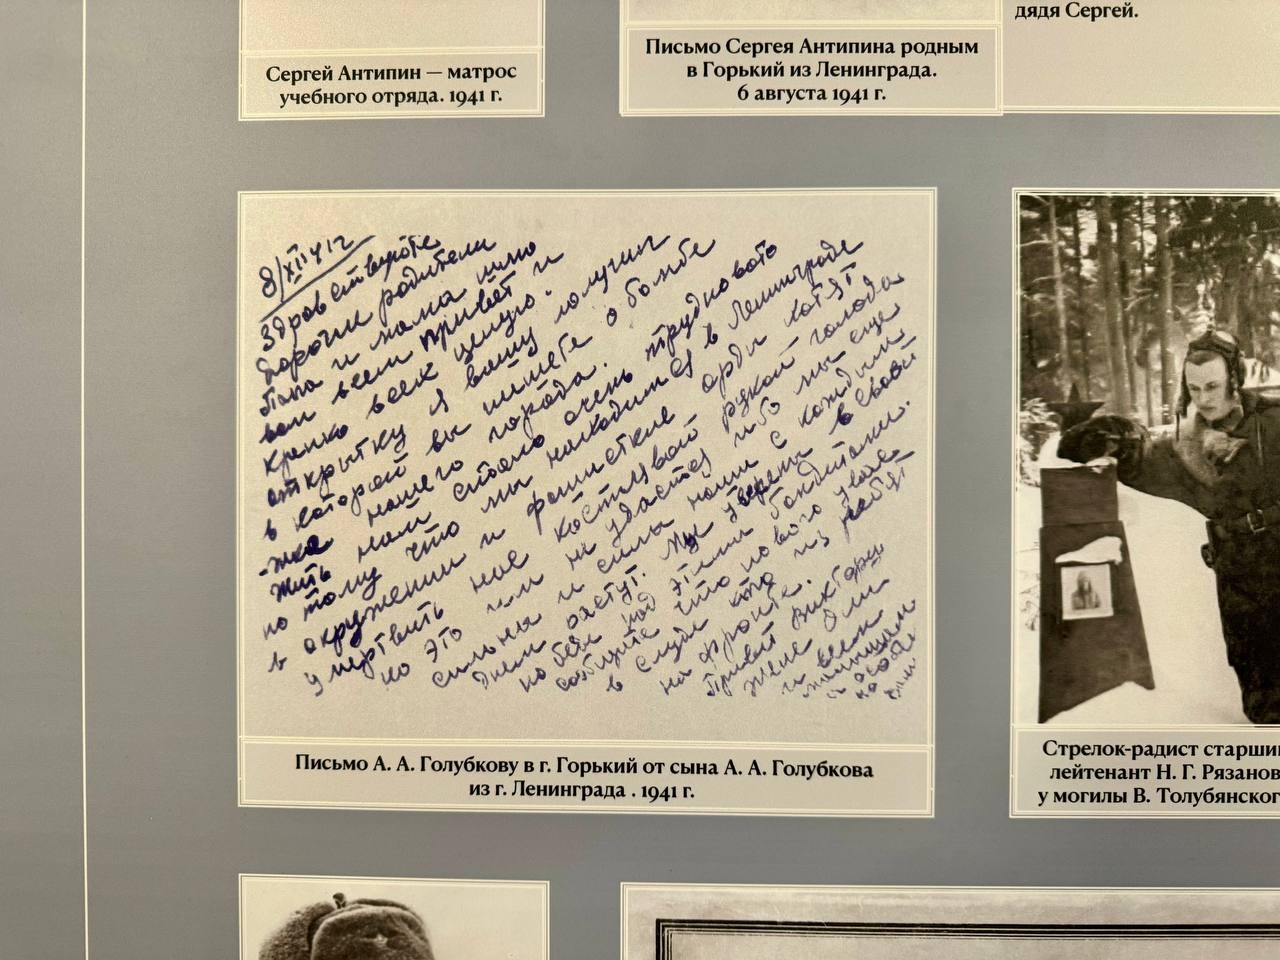 дядя Сергей.
Сергей Антипин — матрос
учебного отряда. 1941 г.
Письмо Сергея Антипина родным
в Горький из Ленинграда.
6 августа 1941 г.
8/XII 41 г
Здравствуйте
дорогие родители
папа и мама шлю
вам всем привет и
крепко всех целую.
открытку я вашу получил
в которой вы пишете о бомбе
нашего города.
жить нам стало очень трудновато
потому что мы находимся в Ленинграде
в окружении и фашисткие орды хотят
умертвить нас костлявой рукой голода
но это им не удастся ибо мы еще
сильны и силы наши с каждым
днем растут. Мы уверены в своей
победе над этими бандитами.
сообщите что нового у вас
в слуде кто из ребят
на фронте.
Привет Виктору
жене Оли
и всем
Письмо А. А. Голубкову в г. Горький от сына А. А. Голубкова
из г. Ленинграда . 1941 г.
Стрелок-радист старший
лейтенант Н. Г. Рязанов
у могилы В. Толубянского